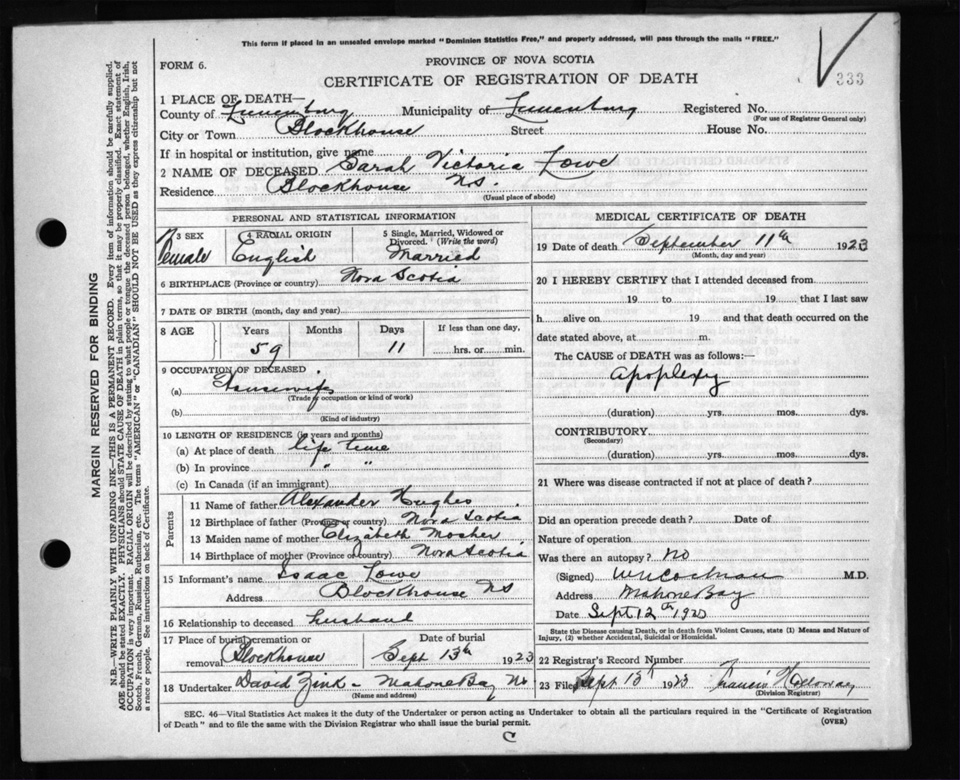 This form if placed in an unsealed envelope marked "Dominion Statistics Free," and properly addressed, will pass through the mails "FREE."
FORM 6.
PROVINCE OF NOVA SCOTIA
CERTIFICATE OF REGISTRATION OF DEATH
333
1 PLACE OF DEATH—
County of Lunenburg Municipality of Lunenburg Registered No.
(For use of Registrar General only)
City or Town Blockhouse Street House No.
If in hospital or institution, give name
2 NAME OF DECEASED Sarah Victoria Lowe
Residence Blockhouse NS.
(Usual place of abode)
PERSONAL AND STATISTICAL INFORMATION
3 SEX 4 RACIAL ORIGIN 5 Single, Married, Widowed or Divorced. (Write the word)
Female English Married
6 BIRTHPLACE (Province or country) Nova Scotia
7 DATE OF BIRTH (month, day and year)
8 AGE Years Months Days If less than one day,
59 11 hrs. or min.
9 OCCUPATION OF DECEASED
(a) Housewife
(Trade or occupation or kind of work)
(b)
(Kind of industry)
10 LENGTH OF RESIDENCE (in years and months)
(a) At place of death life time
(b) In province " "
(c) In Canada (if an immigrant)
Parents
11 Name of father Alexander Hughes
12 Birthplace of father (Province or country) Nova Scotia
13 Maiden name of mother Elizabeth Mosher
14 Birthplace of mother (Province or country) Nova Scotia
15 Informant's name Isaac Lowe
Address Blockhouse NS
16 Relationship to deceased husband
17 Place of burial, cremation or Date of burial
removal Blockhouse Sept 13th 1923
18 Undertaker David Zink - Mahone Bay Ns
(Name and address)
MEDICAL CERTIFICATE OF DEATH
19 Date of death September 11th 1923
(Month, day and year)
20 I HEREBY CERTIFY that I attended deceased from
19 to 19 that I last saw
h alive on 19 and that death occurred on the
date stated above, at m.
The CAUSE of DEATH was as follows:—
Apoplexy
(duration) yrs. mos. dys.
CONTRIBUTORY
(Secondary)
(duration) yrs. mos. dys.
21 Where was disease contracted if not at place of death?
Did an operation precede death? Date of
Nature of operation
Was there an autopsy? No
(Signed) W N Cochran M.D.
Address Mahone Bay
Date Sept 12th 1923
State the Disease causing Death, or in death from Violent Causes, state (1) Means and Nature of
Injury, (2) whether Accidental, Suicidal or Homicidal.
22 Registrar's Record Number
23 Filed Sept 13th 1923 Francis Holloway
(Division Registrar)
SEC. 46—Vital Statistics Act makes it the duty of the Undertaker or person acting as Undertaker to obtain all the particulars required in the "Certificate of Registration
of Death" and to file the same with the Division Registrar who shall issue the burial permit.
(OVER)
C
MARGIN RESERVED FOR BINDING
N.B.—WRITE PLAINLY WITH UNFADING INK—THIS IS A PERMANENT RECORD. Every item of information should be carefully supplied.
AGE should be stated EXACTLY. PHYSICIANS should STATE CAUSE OF DEATH in plain terms, so that it may be properly classified. Exact statement of
OCCUPATION is very important. RACIAL ORIGIN will be described by stating to what people or tongue the deceased person belonged, whether English, Irish,
Scotch, French, German, Russian, Ruthenian, etc. The terms "AMERICAN" or "CANADIAN" SHOULD NOT BE USED as they express citizenship but not
a race or people. See instructions on back of Certificate.